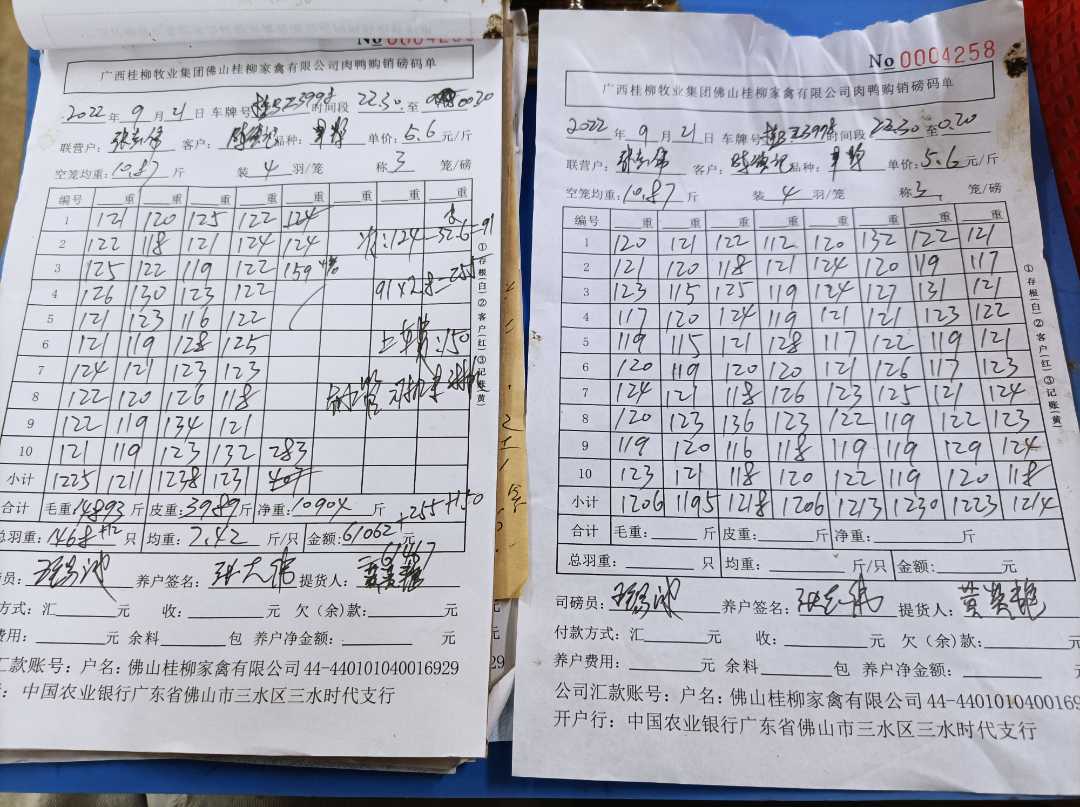 No 0004
广西桂柳牧业集团佛山桂柳家禽有限公司肉鸭购销磅码单
2022 年 9 月 21 日 车牌号 的间段 22.30 至 00 20
联营户: 客户: 品种: 单价: 5.6 元/斤
空笼均重: 10.87 斤 装 4 羽/笼 称 3 笼/磅
编号 重 重 重 重 重 重 重 重
1 121 120 125 122 124
2 122 118 121 124 124 124-32.6=91
3 125 122 119 122 159
4 126 130 123 122 91×2.8=255
5 121 123 116 122
6 121 119 128 125 上车费:150
7 124 121 123 123
8 122 120 126 118
9 122 119 134 121
10 121 119 123 132 283
小计 1225 1211 1238 1231
合计 毛重: 14893 斤 皮重: 3989 斤 净重: 10904 斤
总羽重: 1468+12 只 均重: 7.42 斤/只 金额: 61062 +255+150 元
61467
员: 养户签名: 提货人:
方式: 汇 元 收: 元 欠(余)款: 元
费用: 元 余料 包 养户净金额: 元
汇款账号: 户名: 佛山桂柳家禽有限公司 44-440101040016929
: 中国农业银行广东省佛山市三水区三水时代支行
①存根(白)②客户(红)③记账(黄)
No 0004258
广西桂柳牧业集团佛山桂柳家禽有限公司肉鸭购销磅码单
2022 年 9 月 21 日 车牌号 的间段 22.30 至 0.20
联营户: 客户: 品种: 单价: 5.6 元/斤
空笼均重: 10.87 斤 装 4 羽/笼 称 3 笼/磅
编号 重 重 重 重 重 重 重 重
1 120 121 122 112 120 132 122 121
2 121 120 118 121 124 120 119 117
3 123 115 125 119 124 127 131 121
4 117 120 124 119 121 121 123 122
5 119 115 121 128 117 122 119 121
6 120 119 120 120 121 126 117 123
7 124 121 118 126 123 125 121 124
8 120 123 136 123 122 119 122 123
9 119 120 116 118 119 119 129 124
10 123 121 118 120 122 119 120 118
小计 1206 1195 1218 1206 1213 1230 1223 1214
合计 毛重: 斤 皮重: 斤 净重: 斤
总羽重: 只 均重: 斤/只 金额: 元
司磅员: 养户签名: 提货人:
付款方式: 汇 元 收: 元 欠(余)款: 元
养户费用: 元 余料 包 养户净金额: 元
公司汇款账号: 户名: 佛山桂柳家禽有限公司 44-4401010400169
开户行: 中国农业银行广东省佛山市三水区三水时代支行
①存根(白)②客户(红)③记账(黄)